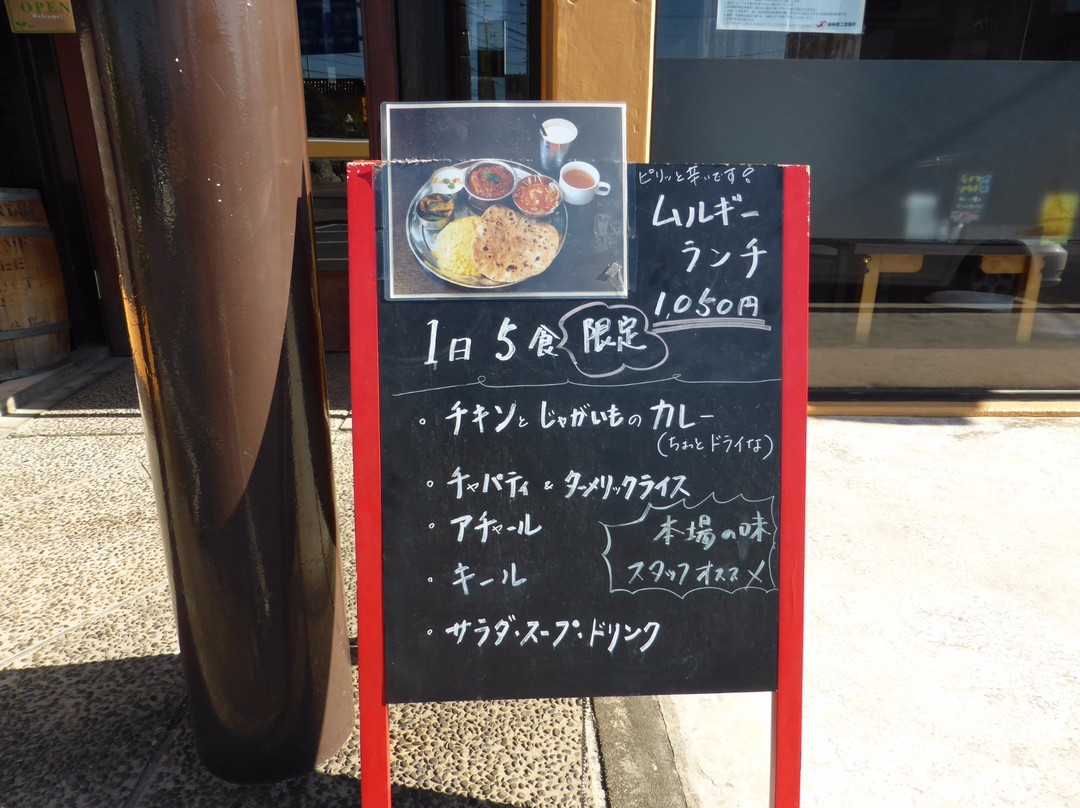 OPEN
Welcome!
ピリッと辛いです?
ムルギー
ランチ
1,050円
1日5食 限定
・チキンとじゃがいものカレー
(ちょっとドライな)
・チャパティ & ターメリックライス
・アチャール
・キール
・サラダ・スープ・ドリンク
本場の味
スタッフオススメ